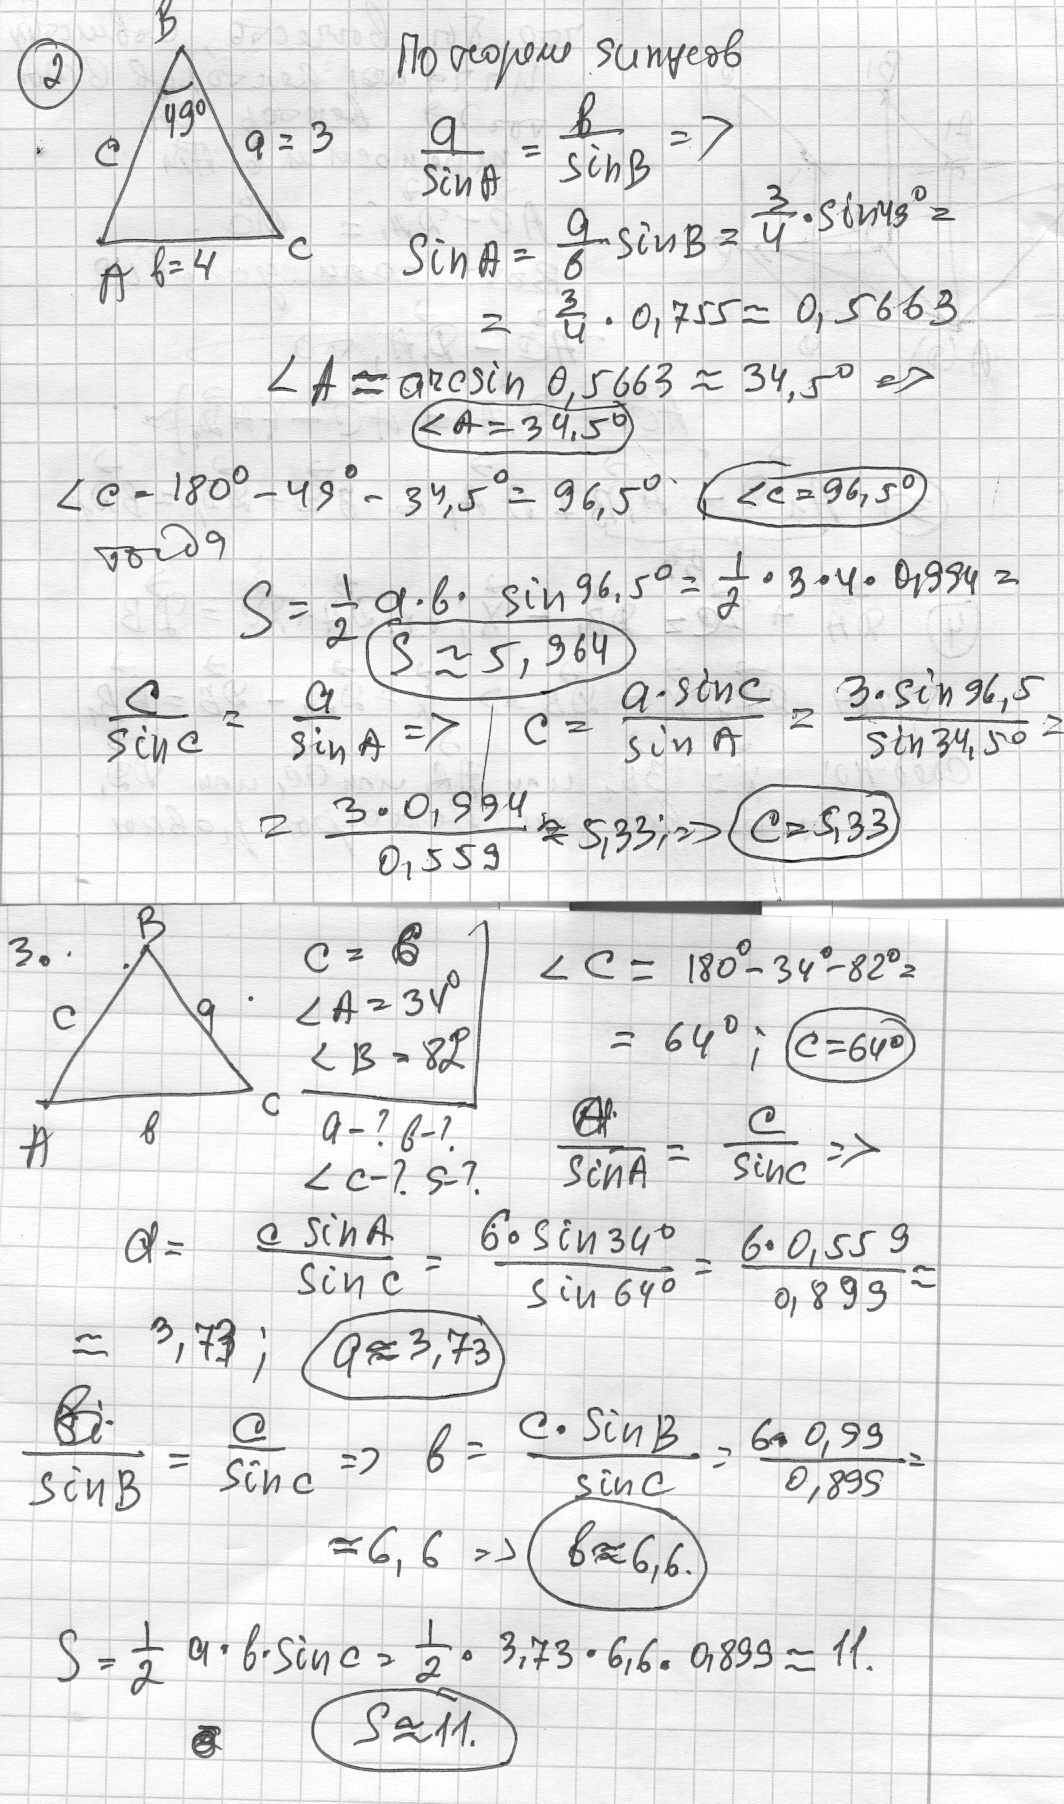 2
B
По теореме sinусов
49°
c
a = 3
a/sinA = b/sinB =>
A
b=4
C
SinA = a/b · sinB = 3/4 · sin49° =
= 3/4 · 0,755 ≈ 0,5663
∠A ≈ arcsin 0,5663 ≈ 34,5° =>
∠A = 34,5°
∠C = 180° - 49° - 34,5° = 96,5°
∠C = 96,5°
тогда
S = 1/2 a·b· sin 96,5° = 1/2 · 3 · 4 · 0,994 =
S ≈ 5,964
c/sinC = a/sinA =>
c = a·sinC/sinA = 3·sin96,5/sin34,5° =
= 3·0,994/0,559 ≈ 5,33; =>
C = 5,33
3.
B
c
a
A
b
C
c = 6
∠A = 34°
∠B = 82°
a-? b-?
∠C-? S-?
∠C = 180° - 34° - 82° =
= 64°;
C = 64°
a/sinA = c/sinC =>
a = c sinA/sinC = 6·sin34°/sin64° = 6·0,559/0,899 ≈
≈ 3,73;
a ≈ 3,73
b/sinB = c/sinC => b = c·sinB/sinC = 6·0,99/0,899 =
≈ 6,6 =>
b ≈ 6,6.
S = 1/2 a·b·sinC = 1/2 · 3,73 · 6,6 · 0,899 ≈ 11.
S ≈ 11.